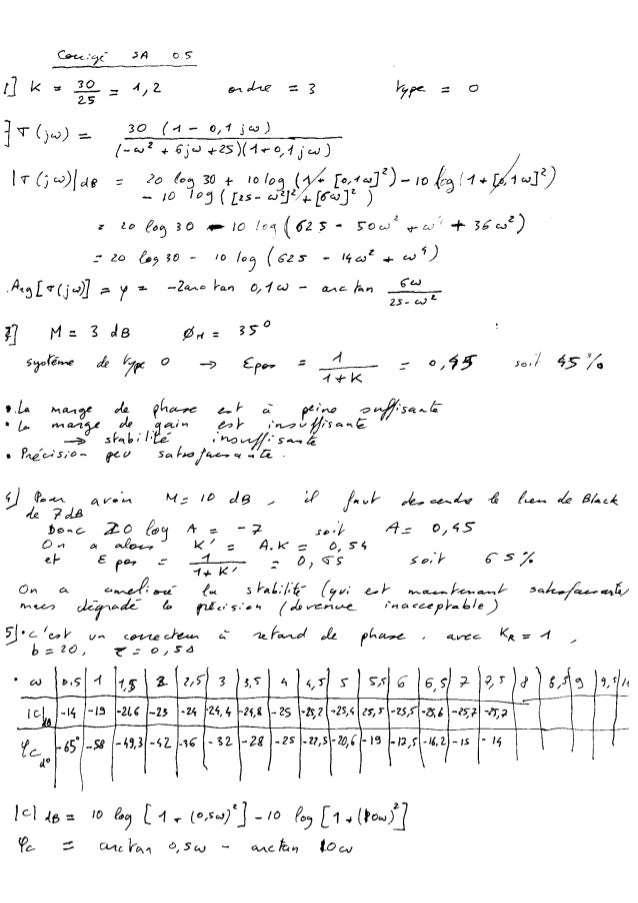 Corrigé SA 05
1] K = 30/25 = 1,2 ordre = 3 type = 0
] T(jω) = 30 (1 - 0,1 jω) / (-ω² + 6jω + 25)(1 + 0,1 jω)
|T(jω)|dB = 20 log 30 + 10 log (1 + [0,1ω]²) - 10 log (1 + [0,1ω]²)
- 10 log ([25 - ω²]² + [6ω]²)
= 20 log 30 - 10 log (625 - 50ω² + ω⁴ + 36ω²)
= 20 log 30 - 10 log (625 - 14ω² + ω⁴)
Arg[T(jω)] = φ = -2arctan 0,1ω - arctan 6ω / 25-ω²
3] M = 3 dB ØM = 35°
système de type 0 → Epos = 1 / 1+K = 0,45 soit 45%
• La marge de phase est à peine suffisante
• La marge de gain est insuffisante
→ stabilité insuffisante
• Précision peu satisfaisante.
4] Pour avoir M = 10 dB, il faut descendre le lieu de Black
de 7dB
Donc 20 log A = -7 soit A = 0,45
On a alors K' = A.K = 0,54
et Epos = 1 / 1+K' = 0,65 soit 65%
On a amélioré la stabilité (qui est maintenant satisfaisante)
mais dégradé la précision (devenue inacceptable)
5] • c'est un correcteur à retard de phase, avec KR = 1,
b = 20, τ = 0,5s
• ω | 0,5 | 1 | 1,5 | 2 | 2,5 | 3 | 3,5 | 4 | 4,5 | 5 | 5,5 | 6 | 6,5 | 7 | 7,5 | 8 | 8,5 | 9 | 9,5 | 10
|C|dB | -14 | -19 | -21,6 | -23 | -24 | -24,4 | -24,8 | -25 | -25,2 | -25,4 | 25,5 | -25,5 | -25,6 | -25,7 | -25,7
φc d° | -65° | -58 | -49,3 | -42 | -36 | -32 | -28 | -25 | -22,5 | -20,6 | -19 | -17,5 | -16,2 | -15 | -14
|C|dB = 10 log [1 + (0,5ω)²] - 10 log [1 + (10ω)²]
φc = arctan 0,5ω - arctan 10ω